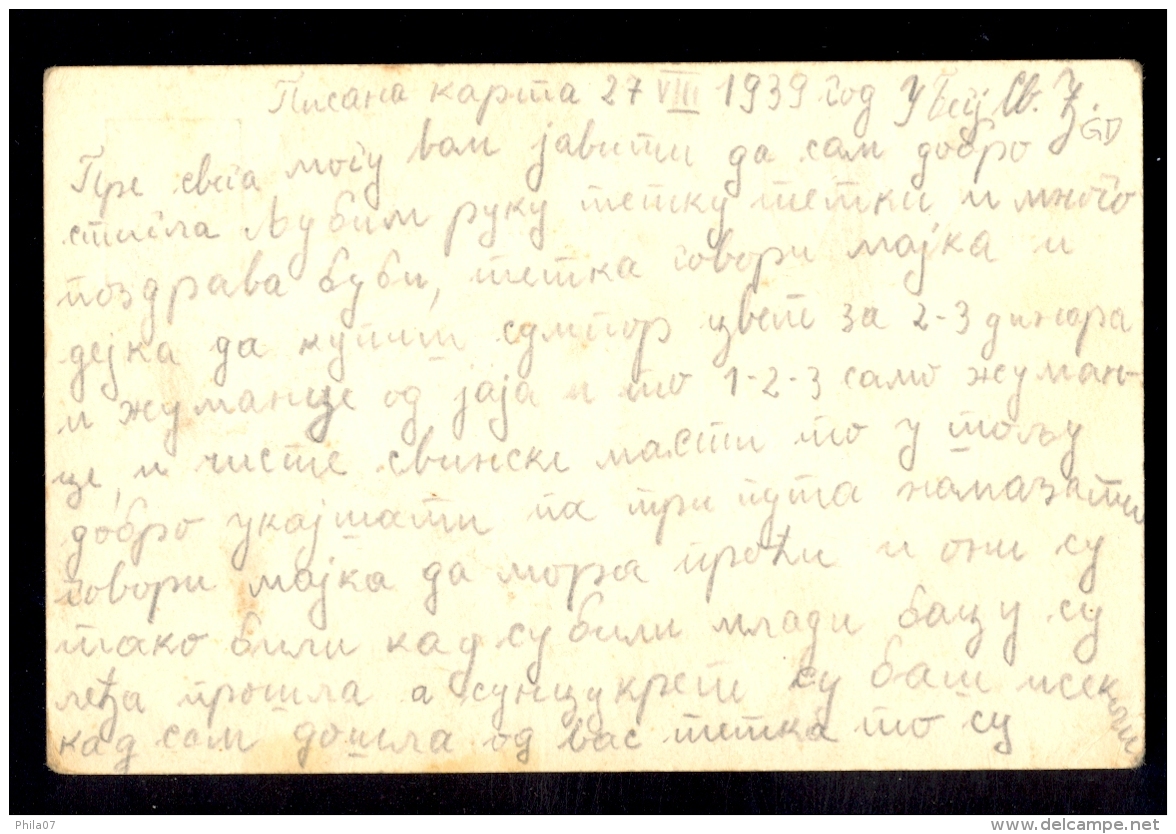 Писана карта 27 VIII 1939 год У Бегј Св. Ђ.
GD
Пре свега могу вам јавити да сам добро
стигла љубим руку тетку тетки и много
поздрава буби, тетка говори мајка и
дејка да купит сумпор цвет за 2-3 динара
и жуманце од јаја и то 1-2-3 само жуман-
це, и чисте свинске масти то у тољу
добро укајшати па три пута намазати
говори мајка да мора проћи и они су
тако били кад су били млади бацу су
леђа прошла а сунцукрет су баш исекли
кад сам дошла од вас тетка то су
Phila07
www.delcampe.net